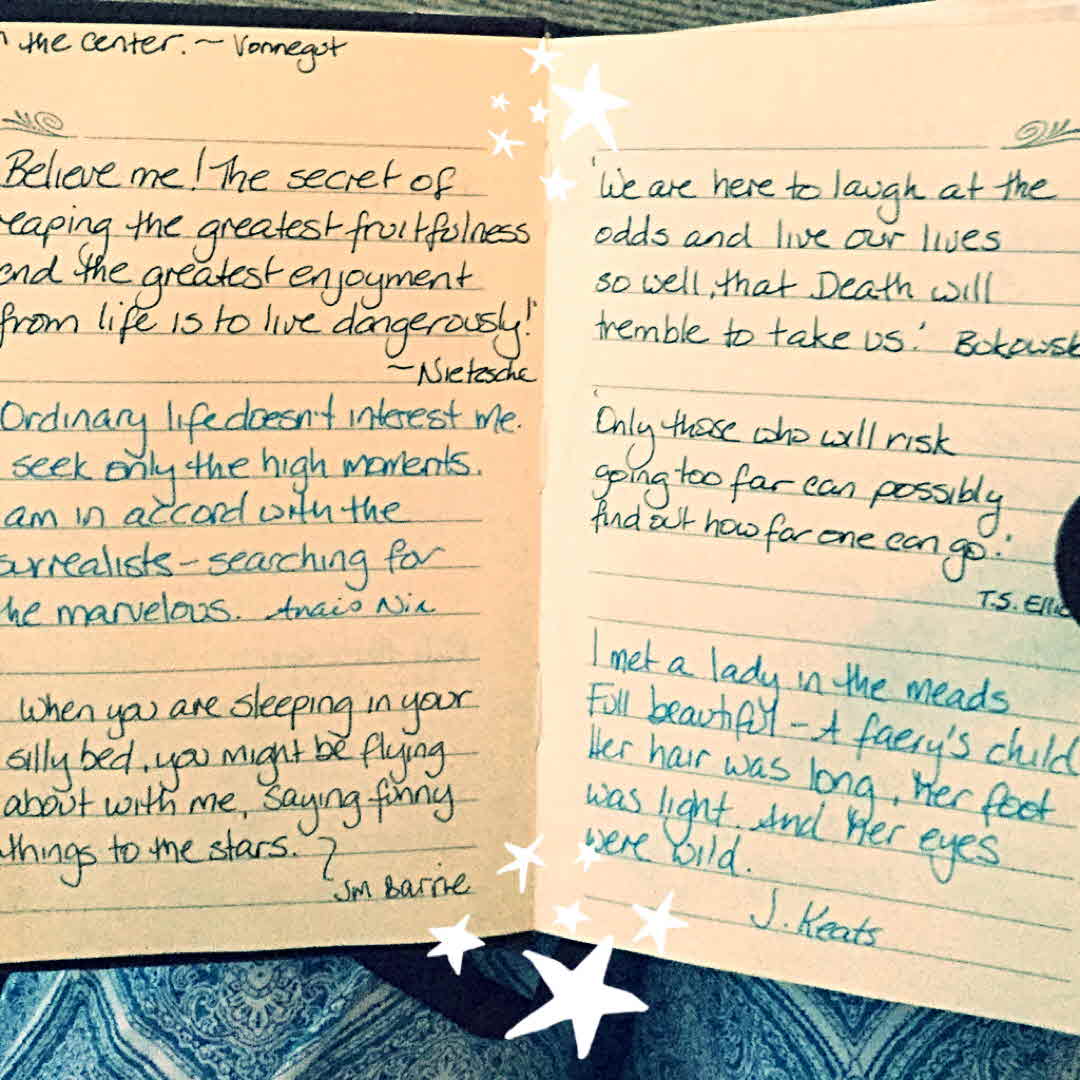 n the center. ~ Vonnegut
Believe me! The secret of
reaping the greatest fruitfulness
and the greatest enjoyment
from life is to live dangerously!'
~Nietzsche
Ordinary life doesn't interest me.
seek only the high moments.
am in accord with the
surrealists - searching for
the marvelous. Anais Nin
When you are sleeping in your
silly bed, you might be flying
about with me, saying funny
things to the stars.
JM Barrie
'We are here to laugh at the
odds and live our lives
so well, that Death will
tremble to take us.' Bukowsk
'Only those who will risk
going too far can possibly
find out how far one can go.'
T.S. Ellio
I met a lady in the meads
Full beautiful - A faery's child
Her hair was long, Her foot
was light. And Her eyes
were wild.
J. Keats